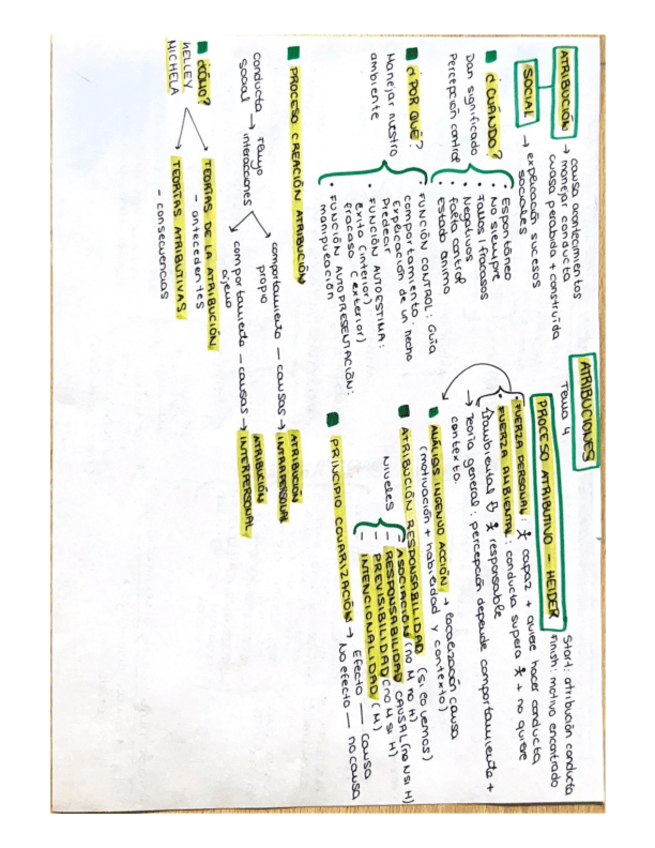 ATRIBUCIONES
Tema 4
ATRIBUCIÓN → causa acontecimientos
→ manejar conducta
causa percibida + construida
SOCIAL → explicación sucesos
sociales
¿CUÁNDO?
Dan significado
Percepción control
• Espontáneo
• No siempre
• Fallos / fracasos
• Negativos
• Falta control
• Estado ánimo
¿POR QUÉ?
Manejar nuestro
ambiente
• FUNCIÓN CONTROL: Guía
comportamiento.
Explicación de un hecho
Predecir
• FUNCIÓN AUTOESTIMA:
éxito (interior)
fracaso (exterior)
• FUNCIÓN AUTOPRESENTACIÓN:
manipulación
PROCESO CREACIÓN ATRIBUCIÓN
conducta
social → flujo
interacciones
comportamiento — causas → ATRIBUCIÓN
propio INTRAPERSONAL
comportamiento — causas → ATRIBUCIÓN
ajeno INTERPERSONAL
¿CÓMO?
KELLEY
MICHELA
TEORÍAS DE LA ATRIBUCIÓN
- antecedentes
TEORÍAS ATRIBUTIVAS
- consecuencias
PROCESO ATRIBUTIVO - HEIDER
Start: atribución conducta
Finish: motivo encontrado
• FUERZA PERSONAL: capaz + quiere hacer conducta
• FUERZA AMBIENTAL: conducta supera + no quiere
responsable
→ Teoría general: percepción depende comportamiento +
contexto.
ANÁLISIS INGENUO ACCIÓN → localización causa
(motivación + habilidad y contexto)
ATRIBUCIÓN RESPONSABILIDAD (si lo vemos)
Niveles
- ASOCIACIÓN (no M no H)
- RESPONSABILIDAD CAUSAL (no NSI H)
- PREVISIBILIDAD (no M si H)
- INTENCIONALIDAD (M)
PRINCIPIO COVARIZACIÓN → Efecto — causa
No efecto — no causa